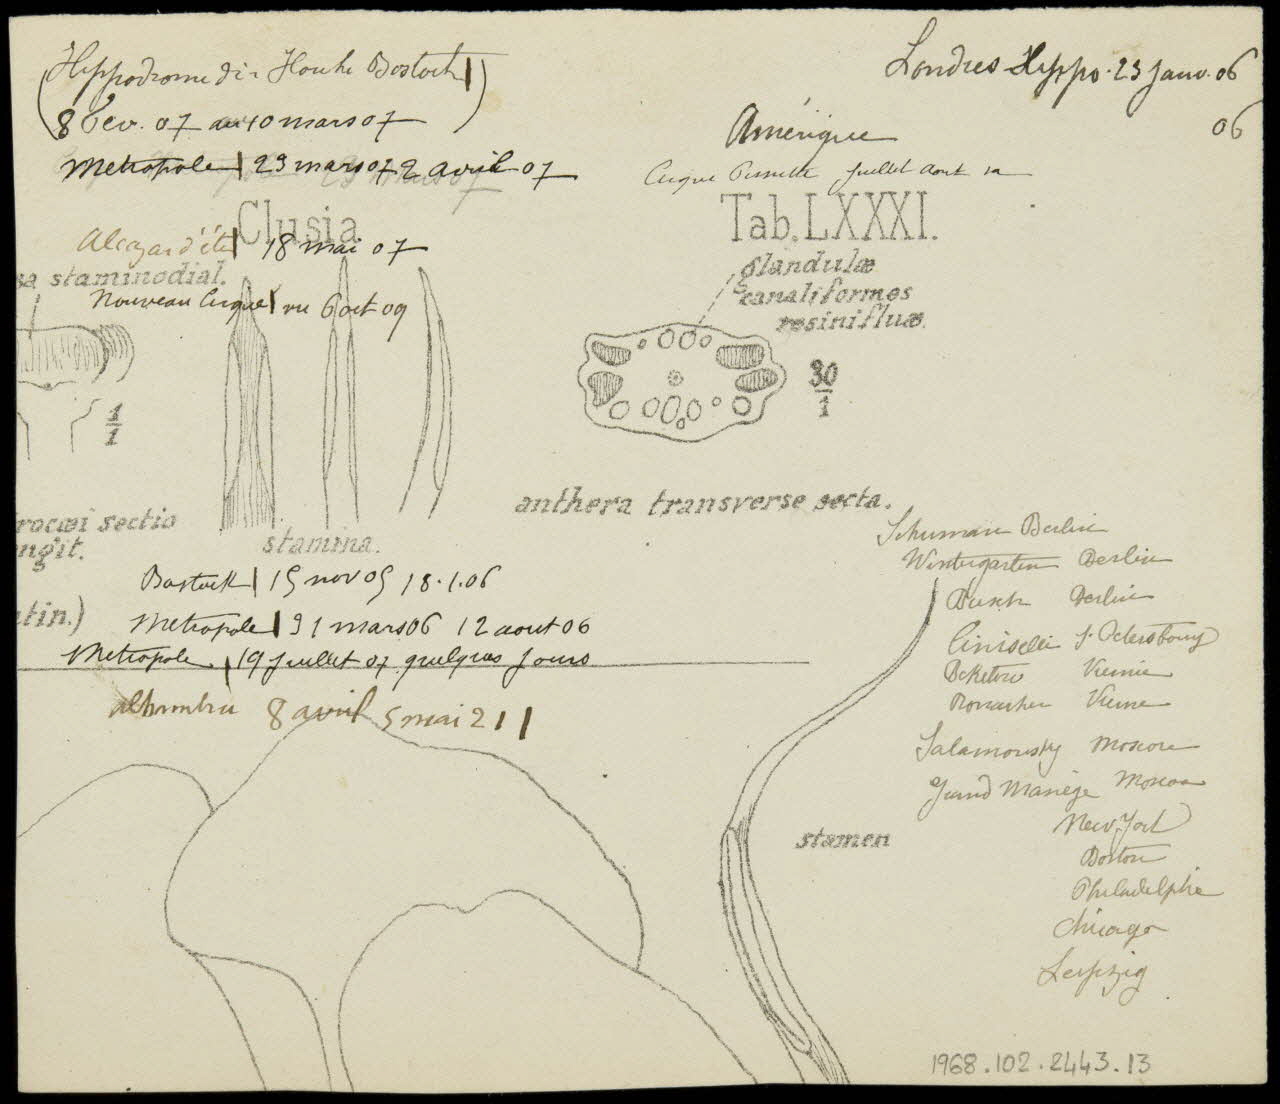 Hippodrome Bostock
8 fev. 07 au 10 mars 07
Metropole 23 mars 07 2 avril 07
Clusia
Alcazar d'été 18 mai 07
sa staminodial.
Nouveau Cirque vu 6 oct 09
1/1
rocœi sectio
ngit.
stamina.
tin.)
Bostock 15 nov 05 18.1.06
Metropole 31 mars 06 12 aout 06
Metropole 19 juillet 07 quelques jours
alhambra 8 avril 5 mai 211
Londres Hippo. 23 janv. 06
06
Amérique
Cirque juillet aout
Tab. LXXXI.
glandulæ
canaliformes
resinifluæ.
30/1
anthera transverse secta.
Schumann Berlin
Wintergarten Berlin
Busch Berlin
Ciniselli S. Petersbourg
Beketow Vienne
Ronacher Vienne
Salamonsky Moscou
Grand Manège Moscou
New York
Boston
Philadelphie
Chicago
Leipzig
stamen
1968.102.2443.13